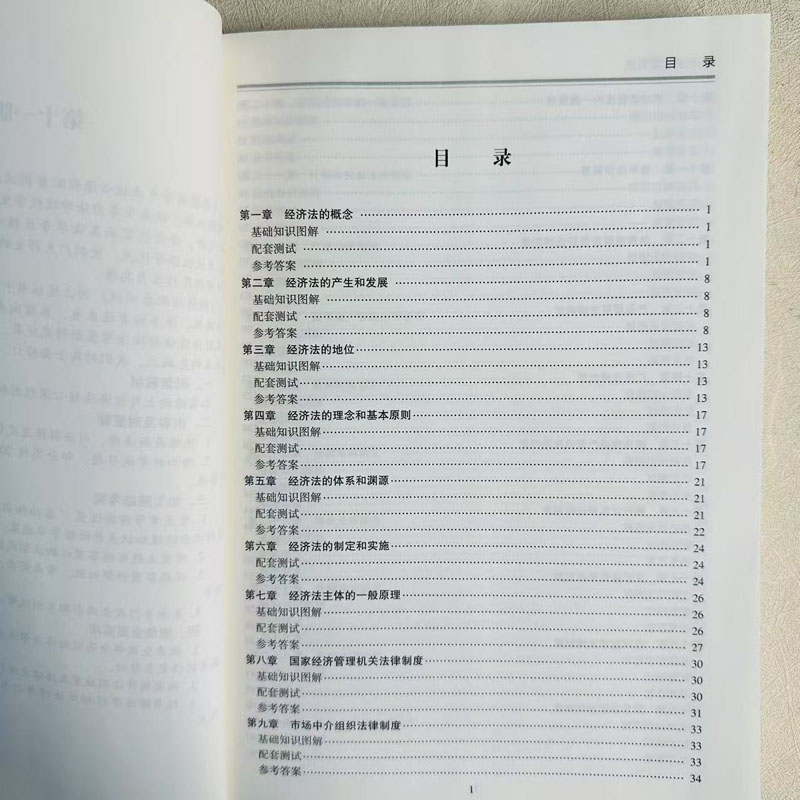 目 录
目 录
第一章 经济法的概念 1
基础知识图解 1
配套测试 1
参考答案 1
第二章 经济法的产生和发展 8
基础知识图解 8
配套测试 8
参考答案 8
第三章 经济法的地位 13
基础知识图解 13
配套测试 13
参考答案 13
第四章 经济法的理念和基本原则 17
基础知识图解 17
配套测试 17
参考答案 17
第五章 经济法的体系和渊源 21
基础知识图解 21
配套测试 21
参考答案 22
第六章 经济法的制定和实施 24
配套测试 24
参考答案 24
第七章 经济法主体的一般原理 26
基础知识图解 26
配套测试 26
参考答案 27
第八章 国家经济管理机关法律制度 30
基础知识图解 30
配套测试 30
参考答案 31
第九章 市场中介组织法律制度 33
基础知识图解 33
配套测试 33
参考答案 34
1